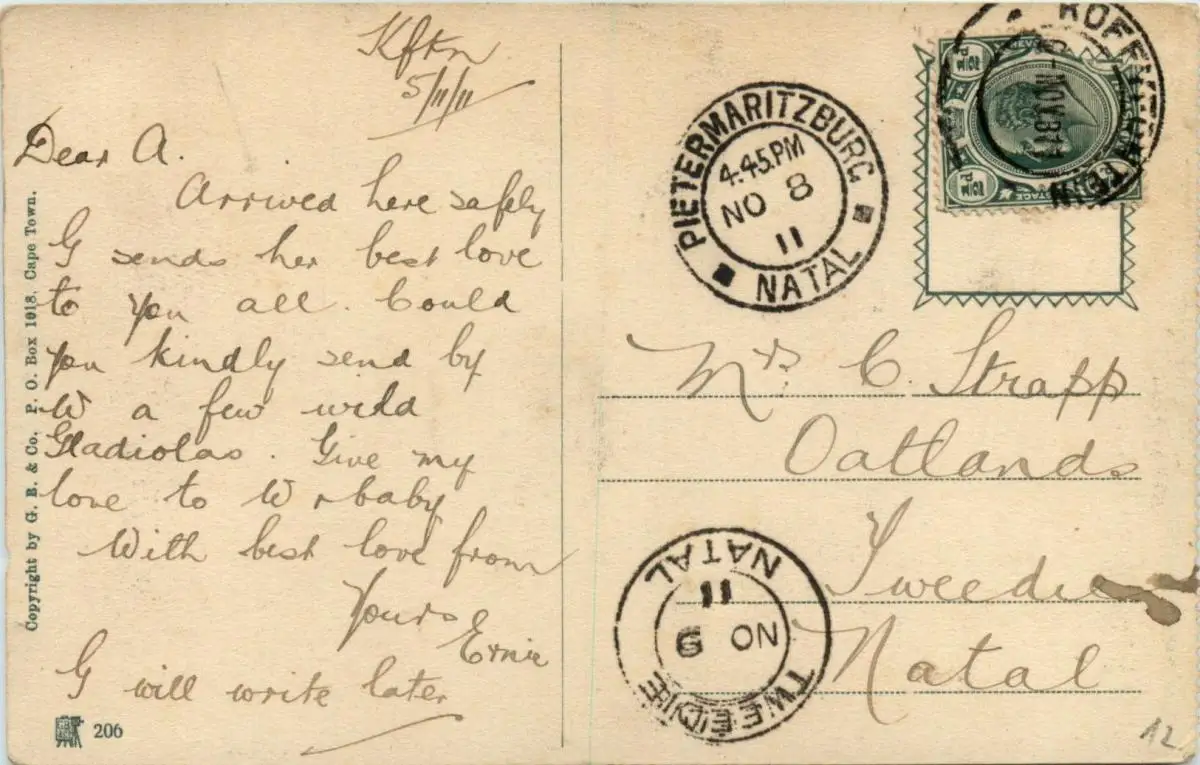 Kftn
5/11/11
Dear A.
Arrived here safely
G sends her best love
to you all. Could
you kindly send by
W a few wild
Gladiolas. Give my
love to W & baby
With best love from
Yours
Ernie
G will write later
Copyright by G. B. & Co. P. O. Box 1018, Cape Town.
206
PIETERMARITZBURG
4.45.PM
NO 8
11
NATAL
KOFFYFONTEIN
NOV 8 11
Mrs C. Strapp
Oatlands
Tweedie
Natal
NATAL
11
NO 9
TWEEDIE
A2